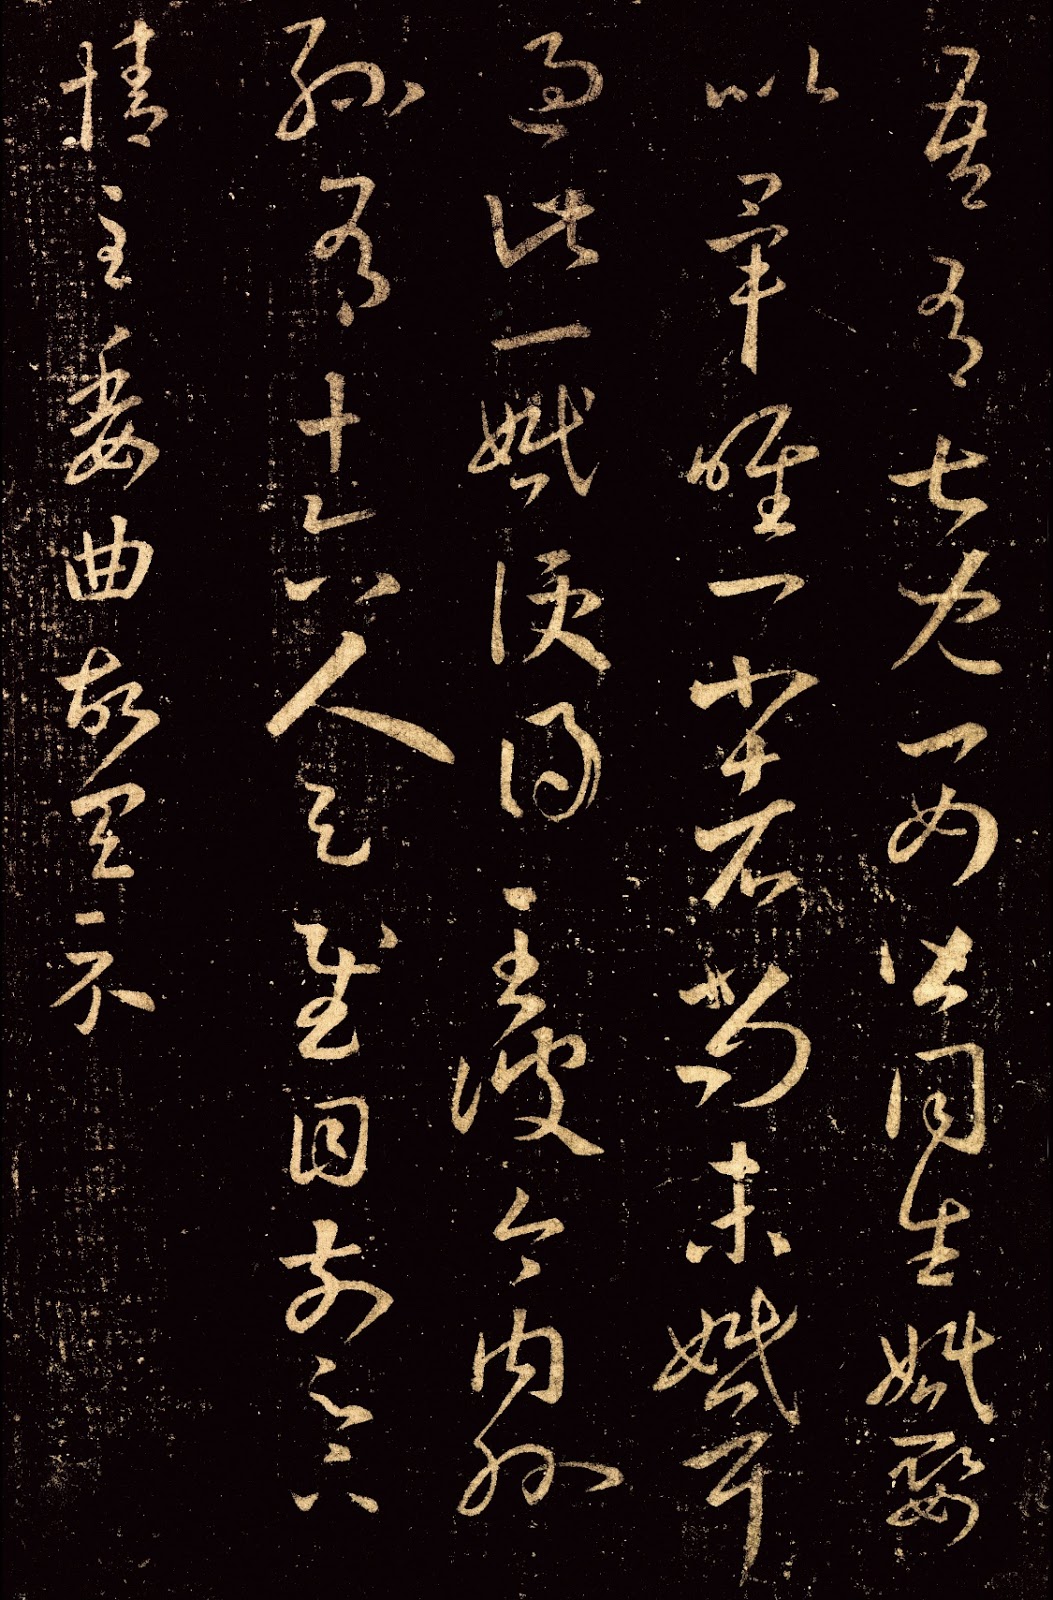 吾有七兒一女皆同生婚娶
以畢唯一小者尚未婚耳
過此一婚便得至彼今内外
孫有十六人足慰目前足下
情至委曲故具示